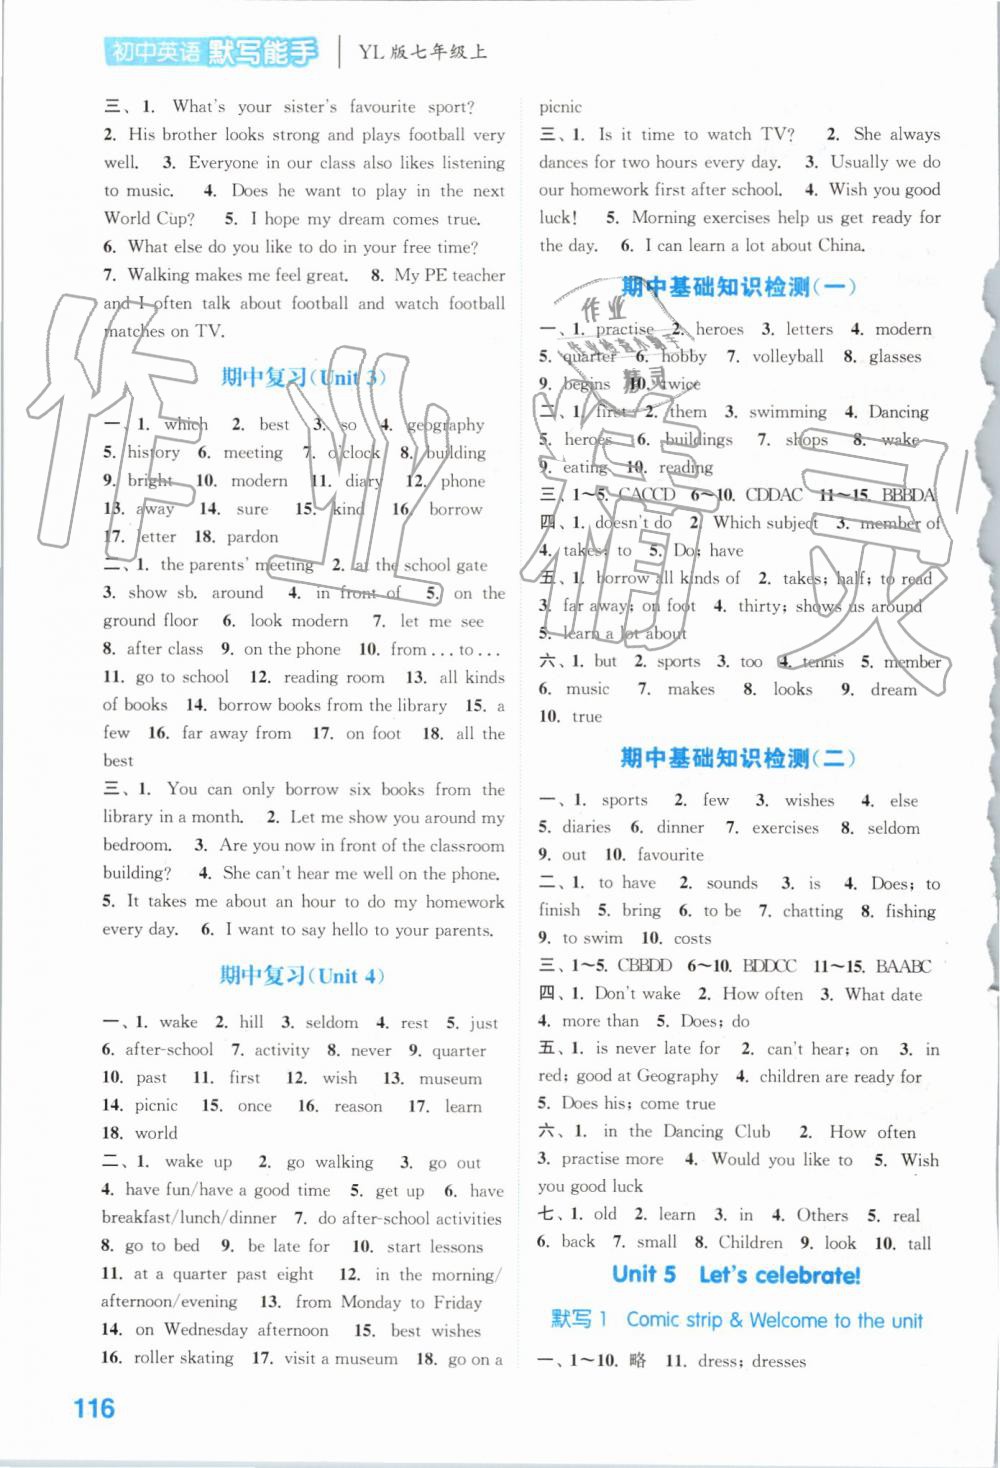 初中英语 默写能手 YL版七年级上
三、1. What's your sister's favourite sport?
2. His brother looks strong and plays football very
well. 3. Everyone in our class also likes listening
to music. 4. Does he want to play in the next
World Cup? 5. I hope my dream comes true.
6. What else do you like to do in your free time?
7. Walking makes me feel great. 8. My PE teacher
and I often talk about football and watch football
matches on TV.
期中复习(Unit 3)
一、1. which 2. best 3. so 4. geography
5. history 6. meeting 7. o'clock 8. building
9. bright 10. modern 11. diary 12. phone
13. away 14. sure 15. kind 16. borrow
17. letter 18. pardon
二、1. the parents' meeting 2. at the school gate
3. show sb. around 4. in front of 5. on the
ground floor 6. look modern 7. let me see
8. after class 9. on the phone 10. from...to...
11. go to school 12. reading room 13. all kinds
of books 14. borrow books from the library 15. a
few 16. far away from 17. on foot 18. all the
best
三、1. You can only borrow six books from the
library in a month. 2. Let me show you around my
bedroom. 3. Are you now in front of the classroom
building? 4. She can't hear me well on the phone.
5. It takes me about an hour to do my homework
every day. 6. I want to say hello to your parents.
期中复习(Unit 4)
一、1. wake 2. hill 3. seldom 4. rest 5. just
6. after-school 7. activity 8. never 9. quarter
10. past 11. first 12. wish 13. museum
14. picnic 15. once 16. reason 17. learn
18. world
二、1. wake up 2. go walking 3. go out
4. have fun/have a good time 5. get up 6. have
breakfast/lunch/dinner 7. do after-school activities
8. go to bed 9. be late for 10. start lessons
11. at a quarter past eight 12. in the morning/
afternoon/evening 13. from Monday to Friday
14. on Wednesday afternoon 15. best wishes
16. roller skating 17. visit a museum 18. go on a
116
picnic
三、1. Is it time to watch TV? 2. She always
dances for two hours every day. 3. Usually we do
our homework first after school. 4. Wish you good
luck! 5. Morning exercises help us get ready for
the day. 6. I can learn a lot about China.
期中基础知识检测(一)
一、1. practise 2. heroes 3. letters 4. modern
5. quarter 6. hobby 7. volleyball 8. glasses
9. begins 10. twice
二、1. first 2. them 3. swimming 4. Dancing
5. heroes 6. buildings 7. shops 8. wake
9. eating 10. reading
三、1~5. CACCD 6~10. CDDAC 11~15. BBBDA
四、1. doesn't do 2. Which subject 3. member of
4. takes; to 5. Do; have
五、1. borrow all kinds of 2. takes; half; to read
3. far away; on foot 4. thirty; shows us around
5. learn a lot about
六、1. but 2. sports 3. too 4. tennis 5. member
6. music 7. makes 8. looks 9. dream
10. true
期中基础知识检测(二)
一、1. sports 2. few 3. wishes 4. else
5. diaries 6. dinner 7. exercises 8. seldom
9. out 10. favourite
二、1. to have 2. sounds 3. is 4. Does; to
finish 5. bring 6. to be 7. chatting 8. fishing
9. to swim 10. costs
三、1~5. CBBDD 6~10. BDDCC 11~15. BAABC
四、1. Don't wake 2. How often 3. What date
4. more than 5. Does; do
五、1. is never late for 2. can't hear; on 3. in
red; good at Geography 4. children are ready for
5. Does his; come true
六、1. in the Dancing Club 2. How often
3. practise more 4. Would you like to 5. Wish
you good luck
七、1. old 2. learn 3. in 4. Others 5. real
6. back 7. small 8. Children 9. look 10. tall
Unit 5 Let's celebrate!
默写1 Comic strip & Welcome to the unit
一、1~10. 略 11. dress; dresses
作业精灵
作业
作业检查小助手
精灵